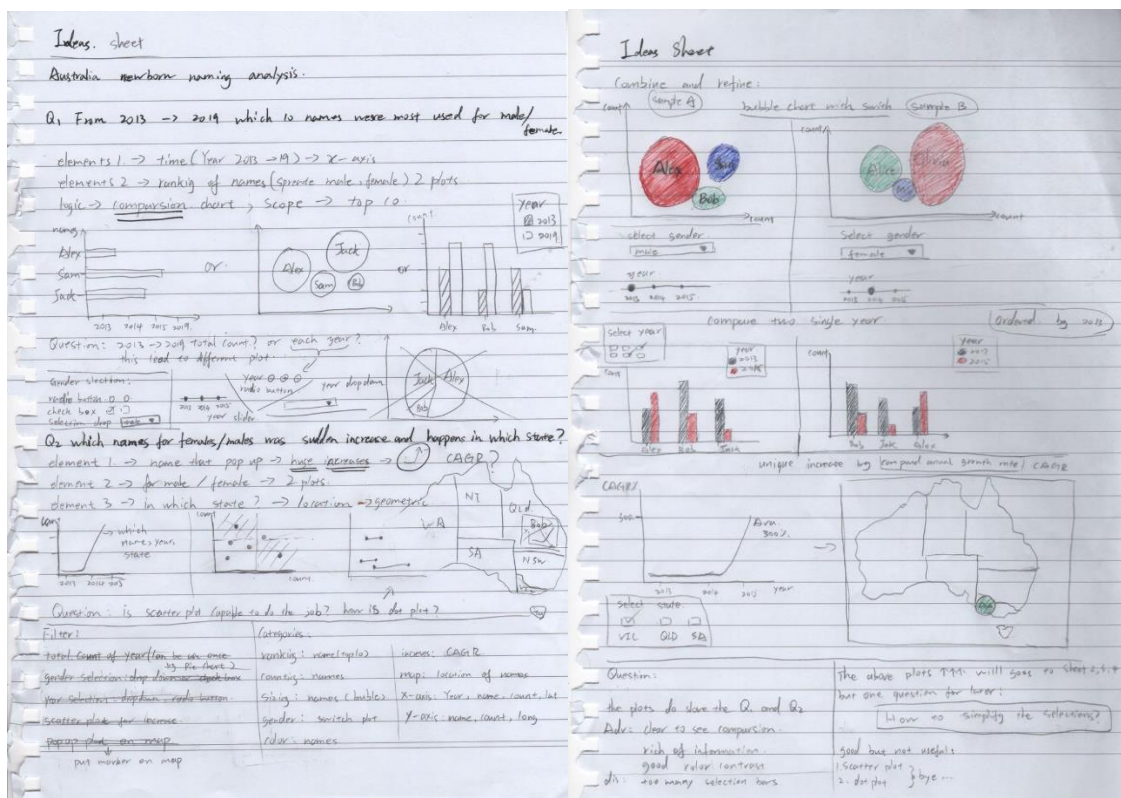 Ideas. sheet
Australia newborn naming analysis.
Q1 From 2013 → 2019 which 10 names were most used for male/
female
elements 1 → time (Year 2013 → 19) → x-axis
elements 2 → ranking of names (sprate male, female) 2 plots
logic → comparsion chart, scope → top 10
names
Alex
Sam
Jack
2013 2014 2015 2019
or
Alex
Jack
Sam
Bob
or
count
Year
2013
2019
Alex Bob Sam
Question: 2013 → 2019 total count? or each year?
this lead to different plot
Gender slection:
radio button
check box
selection drop
2013 2014 2015
year slider
year
radio button
year dropdown
Jack Alex
Bob
Q2 which names for females/males was sudden increase and happens in which state?
element 1 → name that pop up → huge increases → CAGR?
element 2 → for male / female → 2 plots.
element 3 → in which state? → location → geometric
count
which
name, year,
state
2013 2014 2015
count
count
WA
NT
QLd
Bob
SA
NSW
Question: is scatter plot capable to do the job? how is dot plot?
Filter:
total count of year/can be use once
by pie chart?
gender selection: drop down check box
year selection: dropdown, radio button.
scatter plot for increase
popup plot on map
put marker on map
Categories:
ranking: name (top10)
counting: names
sizing: names (buble)
gender: switch plot
colur: names
increas: CAGR
map: location of names
x-axis: Year, name, count, lat
y-axis: name, count, long
Ideas Sheet
Combine and refine:
count
sample A
bubble chart with swich
sample B
Alex
Bob
count
select gender
male
year
2013 2014 2015
count
Alice
Olivia
count
Select gender
female
year
2013 2014 2015
compare two single year
Ordered by 2013
select year
count
year
2013
2015
Alex Bob Jack
count
year
2013
2015
Bob Jack Alex
unique increase by compand annual growth rate / CAGR
CAGR%
300
Ava
300%
2013 2014 2015 year
select state
VIC QLD SA
Ava
Question:
the plots do slove the Q1 and Q2
Adv: clear to see comparsion.
rich of information.
good color contrast
dis: too many selection bars
The above plots ↑↑↑ will goes to sheet 2, 3, 4
but one question for later:
How to simplify the selections?
good but not useful:
1. scatter plot
2. dot plot
bye ...